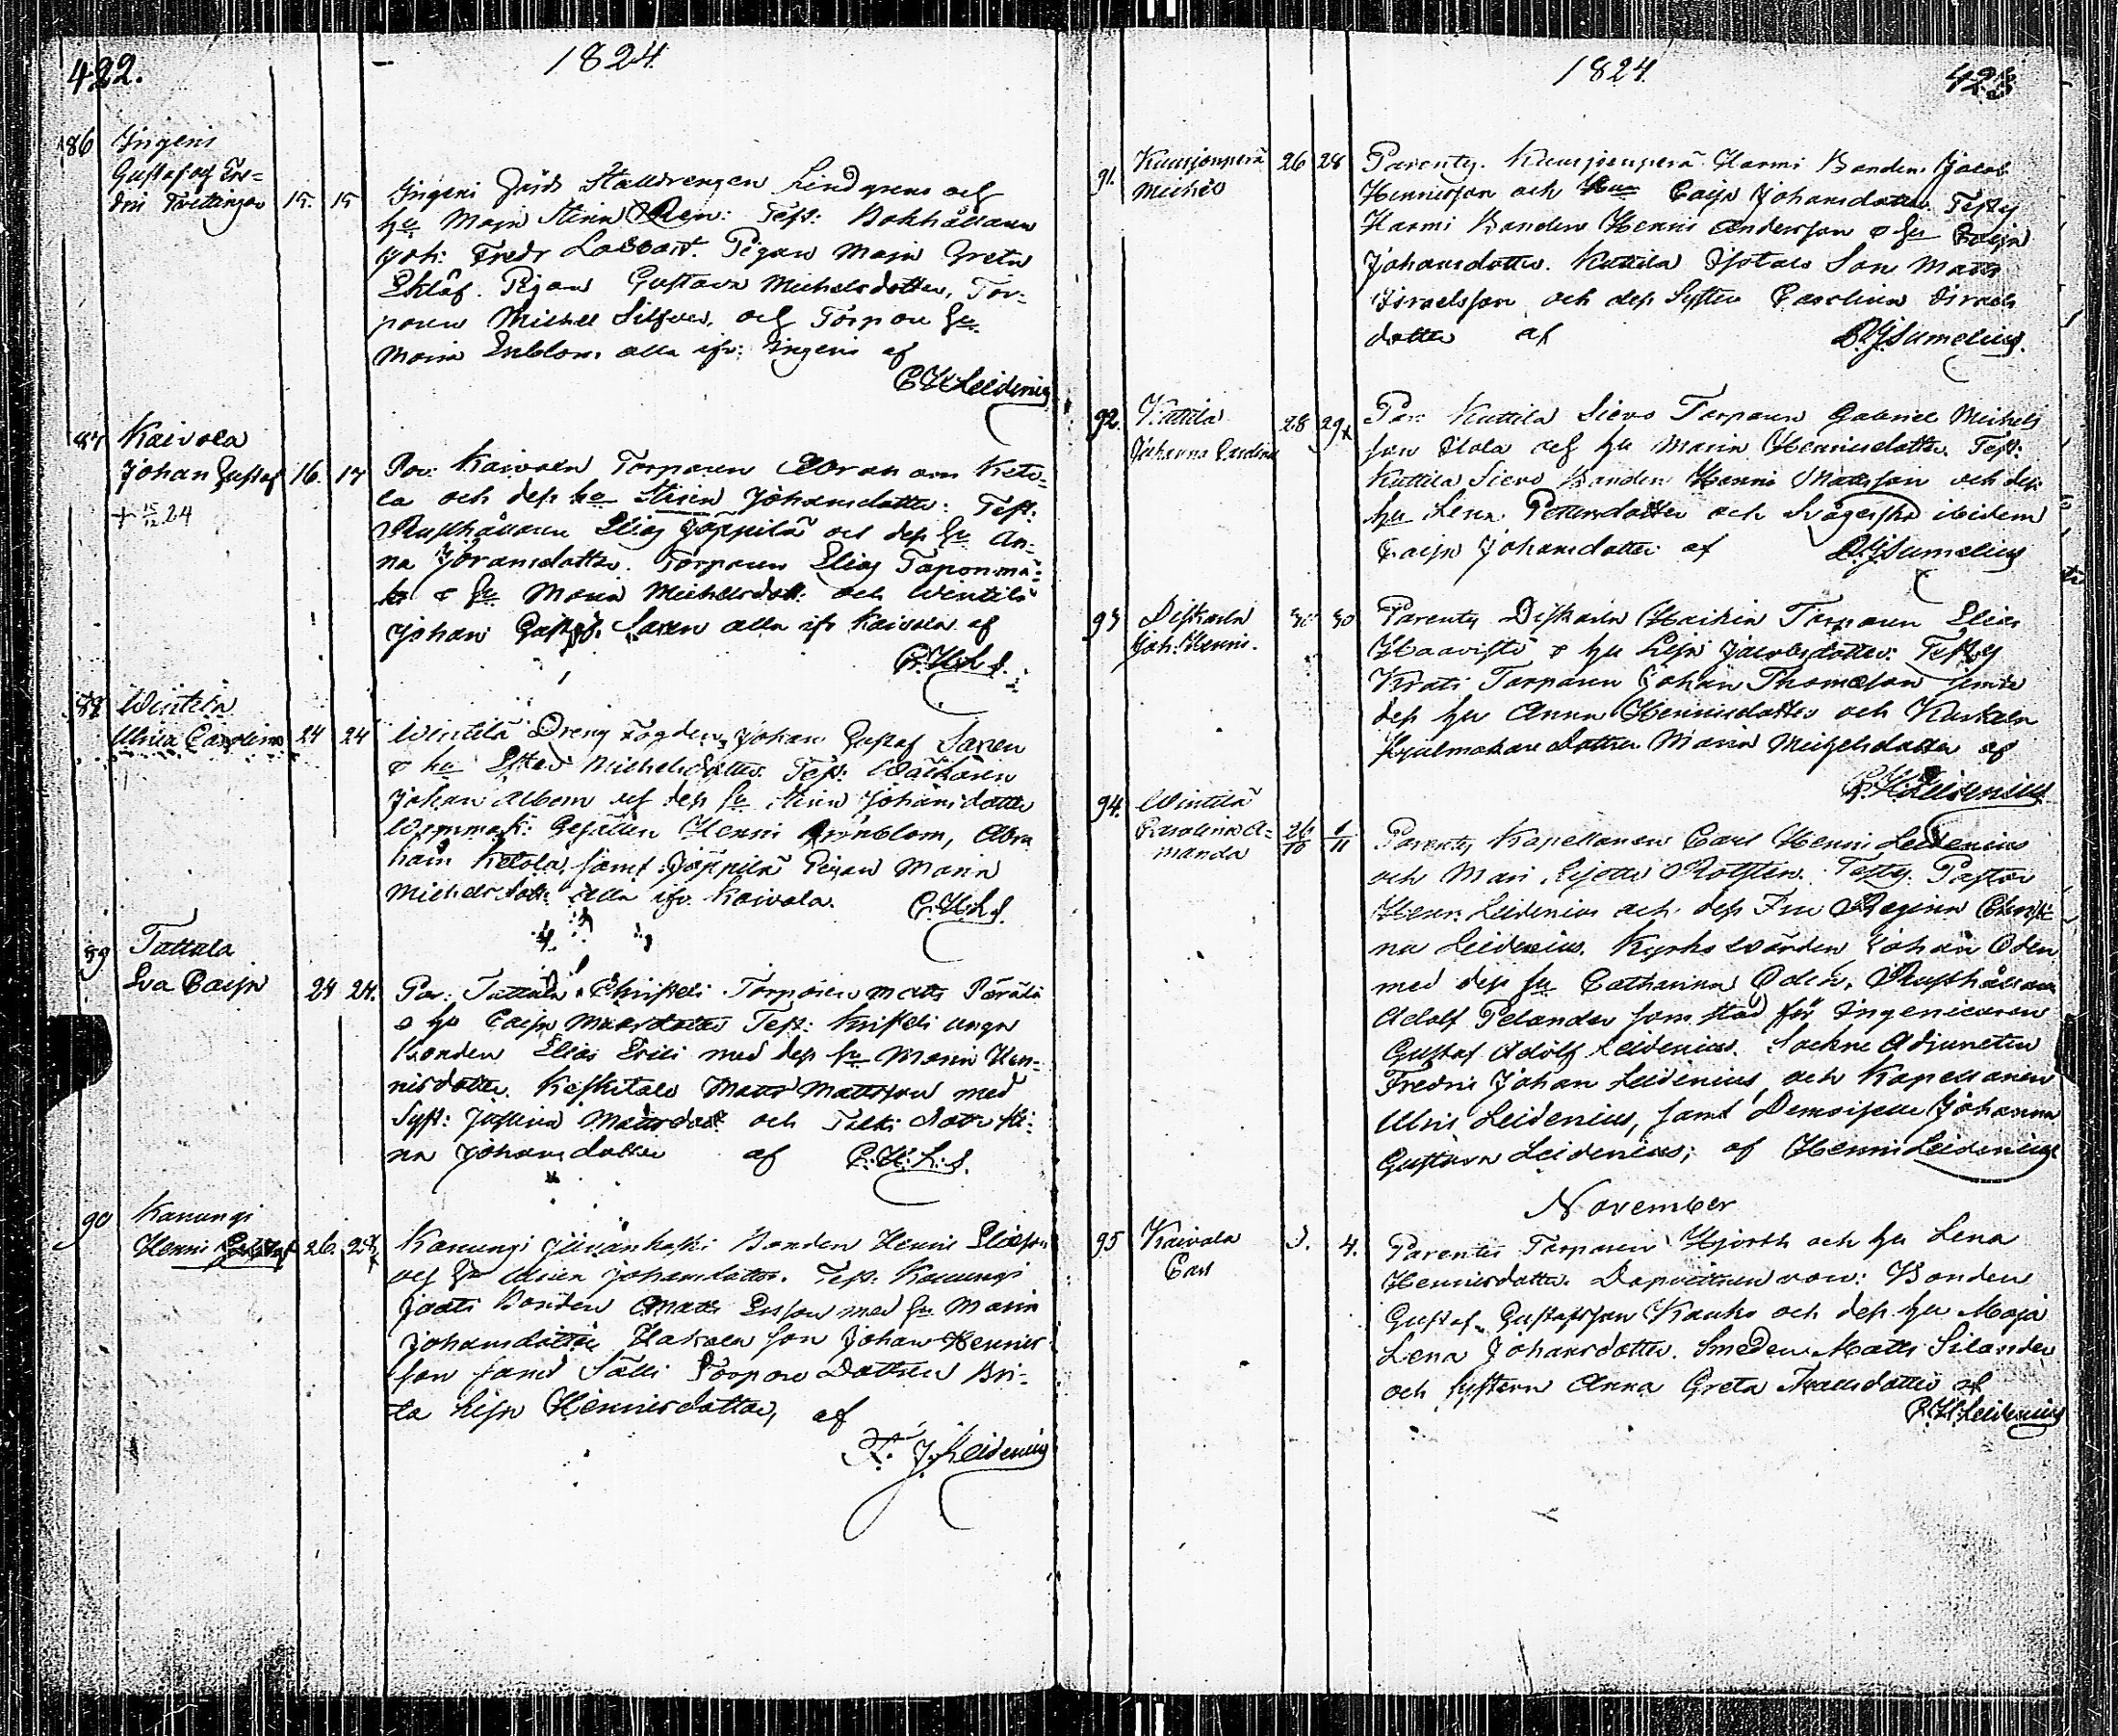 422.
1824
86 Ingeris
Gustaf och Fre-
dric Tvillingar 15. 15
Ingeris Gårds Stalldrengen Lindgren och
hu Maja Stina Test: Bokhållaren
Joh: Fredr Pigan Maja Greta
Eklöf. Pigan Gustava Michelsdotter, Tor-
paren Michel och Torpare hu
Maria alla ifr: Ingeris af
C H Leidenius
87 Kaivola
Johan Gustaf 16. 17
+ 15/12 24
Par: Kaivola Torparen Abraham Keto-
la och dess hu Stina Johansdotter. Test:
Rusthållaren Elias Jöppilä och dess hu An-
na Göransdotter. Torparen Elias Taponmä-
ki & hu Maria Michelsdott: och Wintilä
Johan Gustaf Saren alla ifr Kaivola af
C.H.L.s.
88 Wintilä
Ulrica Carolina 24 24
Wintilä Dreng Fogden, Johan Gustaf Saren
& hu Ester Michelsdotter. Test:
Johan Albom och dess hu Stina Johansdotter
Gesällen Henric Grönblom, Abra
ham Ketola, samt Jöppilä Pigan Maria
Michelsdott: alla ifr Kaivola. C.H.L.s.
89 Tattula
Eva Caisa 24 24.
Par: Tattula Christeli Torparen Matts Perälä
& hu Caisa Mattsdotter Test: Kristeli unga
Bonden Elias Erici med dess hu Maria Hen-
nisdotter. Keskitalo Matts Mattsson med
Syst: Justina Mattsdott och Talki Dottr Sti-
na Johansdotter af C.H.L.s.
90 Kanungi
Henric Gustaf 26. 28
Kanungi Bonden Henric Eliasson
och hu Johansdotter. Test: Kanungi
Jaati Bonden Matts Ersson med hu Maria
Johansdotter Hakola son Johan Henrics
son samt Sälli Torpare Dottren Bri-
ta Lisa Henricsdotter, af
F. J. Leidenius
1824
423
91. Kuusjoenperä
Michel 26 28
Parentes. Kuusjoenperä Harmi Bonden Jacob
Henricsson och hu Caisa Johansdotter. Testes
Harmi Bonden Henric Andersson & hu Caisa
Johansdotter. Kuttila Isotalo Son Matts
Israelsson och dess Syster Carolina Israels
dotter af A.J. Sumelius.
92. Kuttila
Johanna Carolina 28 29
Par: Kuttila Sievo Torparen Gabriel Michels
son Ilola och hu Maria Henricsdotter. Test:
Kuttila Sievo Bonden Henric Mattsson och dess
hu Lena Pettersdotter och Svägerska ibidem
Caisa Johansdotter af A.J. Sumelius
93 Diskarla
Joh: Henric. 30 30
Parentes Diskarla Heikin Torparen Elias
Haavisto & hu Lisa Jacobsdotter. Testes
Krati Torparen Johan Thomasson samt
dess hu Anna Henricsdotter och Kaskala
Hjulmakare dottren Maria Michelsdotter af
C.H. Leidenius
94. Wintilä
Carolina A-
manda 26/10 1/11
Parentes Kapellanen Carl Henric Leidenius
och Mari Rotsten. Testes. Pastor
Henr. Leidenius och dess Fru Regina Christi
na Leidenius. Kyrko värden Johan Oden
med dess hu Catharina Oden. Rusthållaren
Adolf Pelander som stod för Ingenieuren
Gustaf Adolf Leidenius. Sockne Adjuncten
Fredric Johan Leidenius, och Kapellanen
Ulric Leidenius, samt Demoiselle Johanna
Gustava Leidenius; af Henric Leidenius
November
95 Kaivola
Carl 3. 4.
Parentes Torparen Hjorth och hu Lena
Henricsdotter. Dopvittnen voro: Bonden
Gustaf Gustafsson Kauko och dess hu Maja
Lena Johansdotter. Smeden Matts Silander
och systern Anna Greta af
C.H. Leidenius